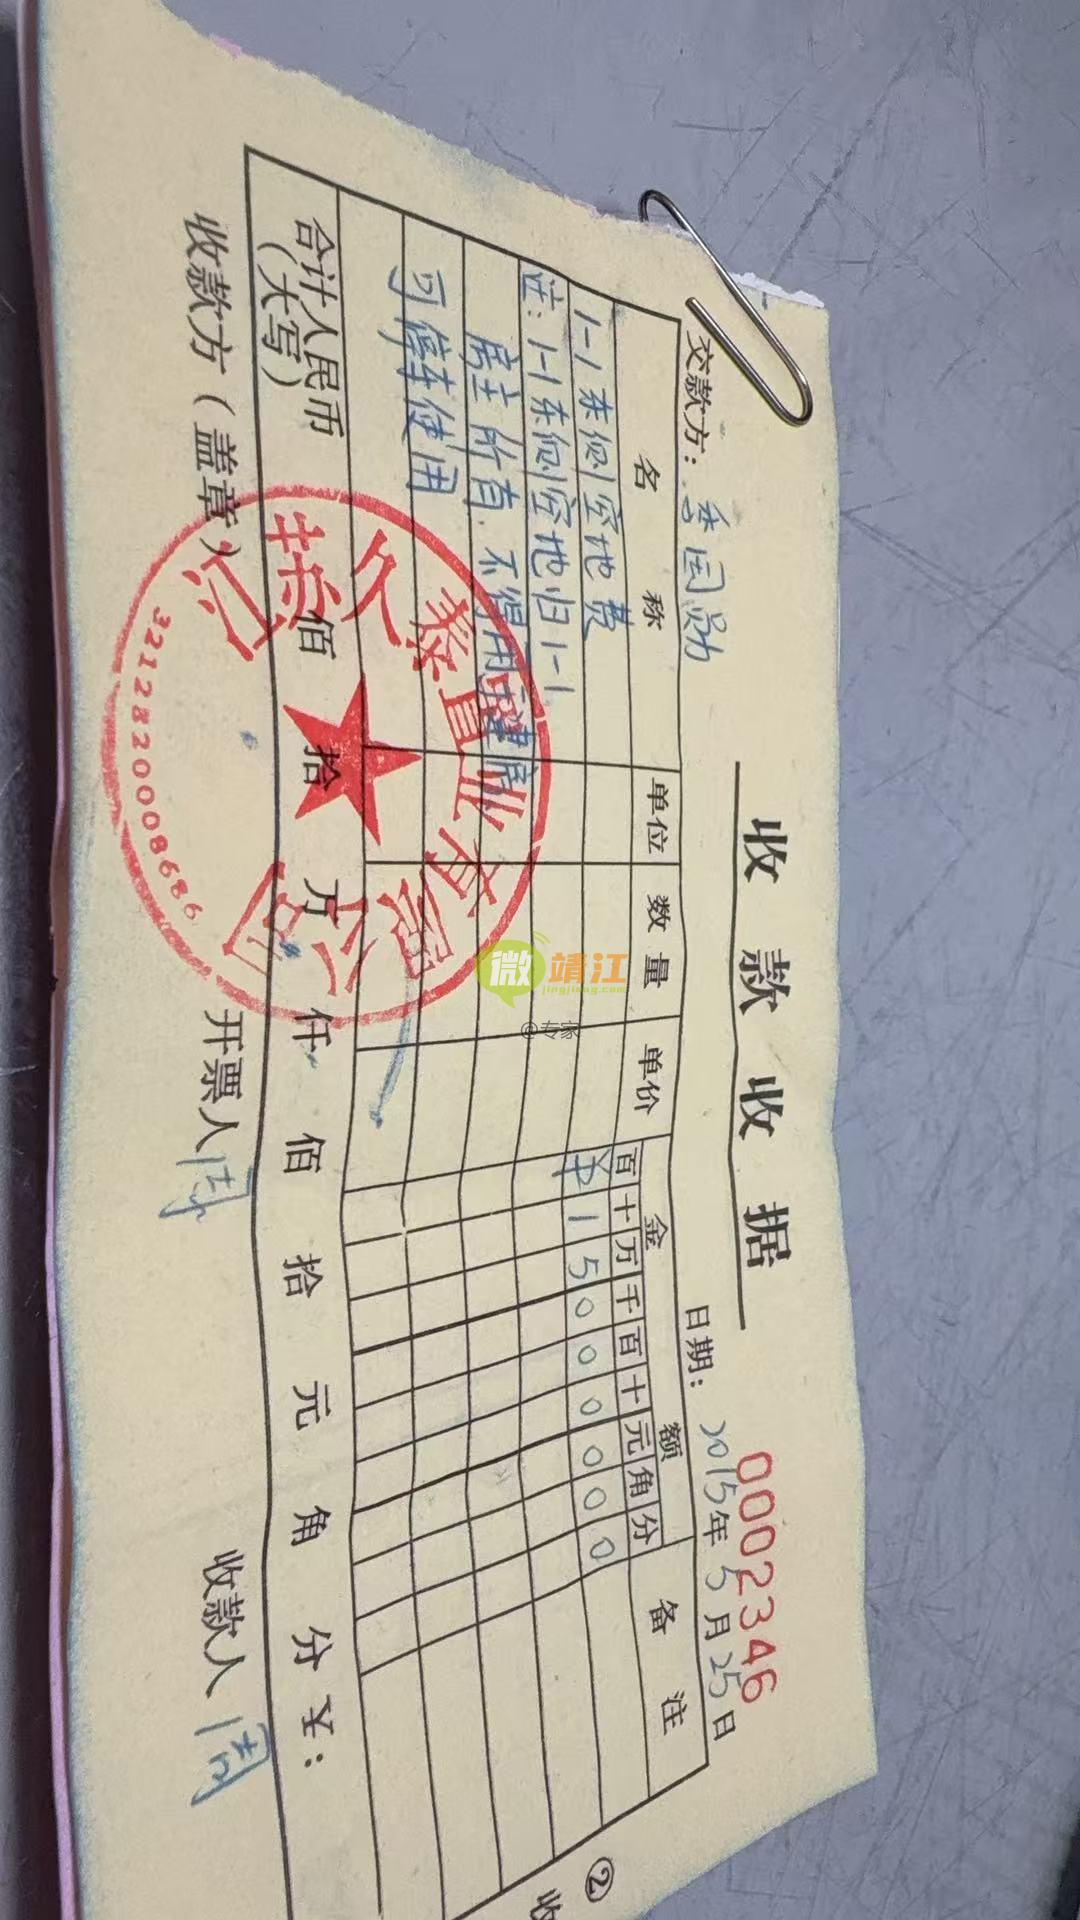 收款收据
0002346
交款方：季国勋
日期：2015年5月25日
名称 单位 数量 单价 金额 备注
百十万千百十元角分
1-1东侧空地费 ¥15000000
注：1-1东侧空地归1-1
居主所有.不得用于建房
可停车使用
合计人民币
（大写）
佰拾万仟佰拾元角分¥：
收款方（盖章）
开票人 周
收款人 周
②
收
久泰置业有限公司
3212820008686
微靖江
jingjiang.com
@专家